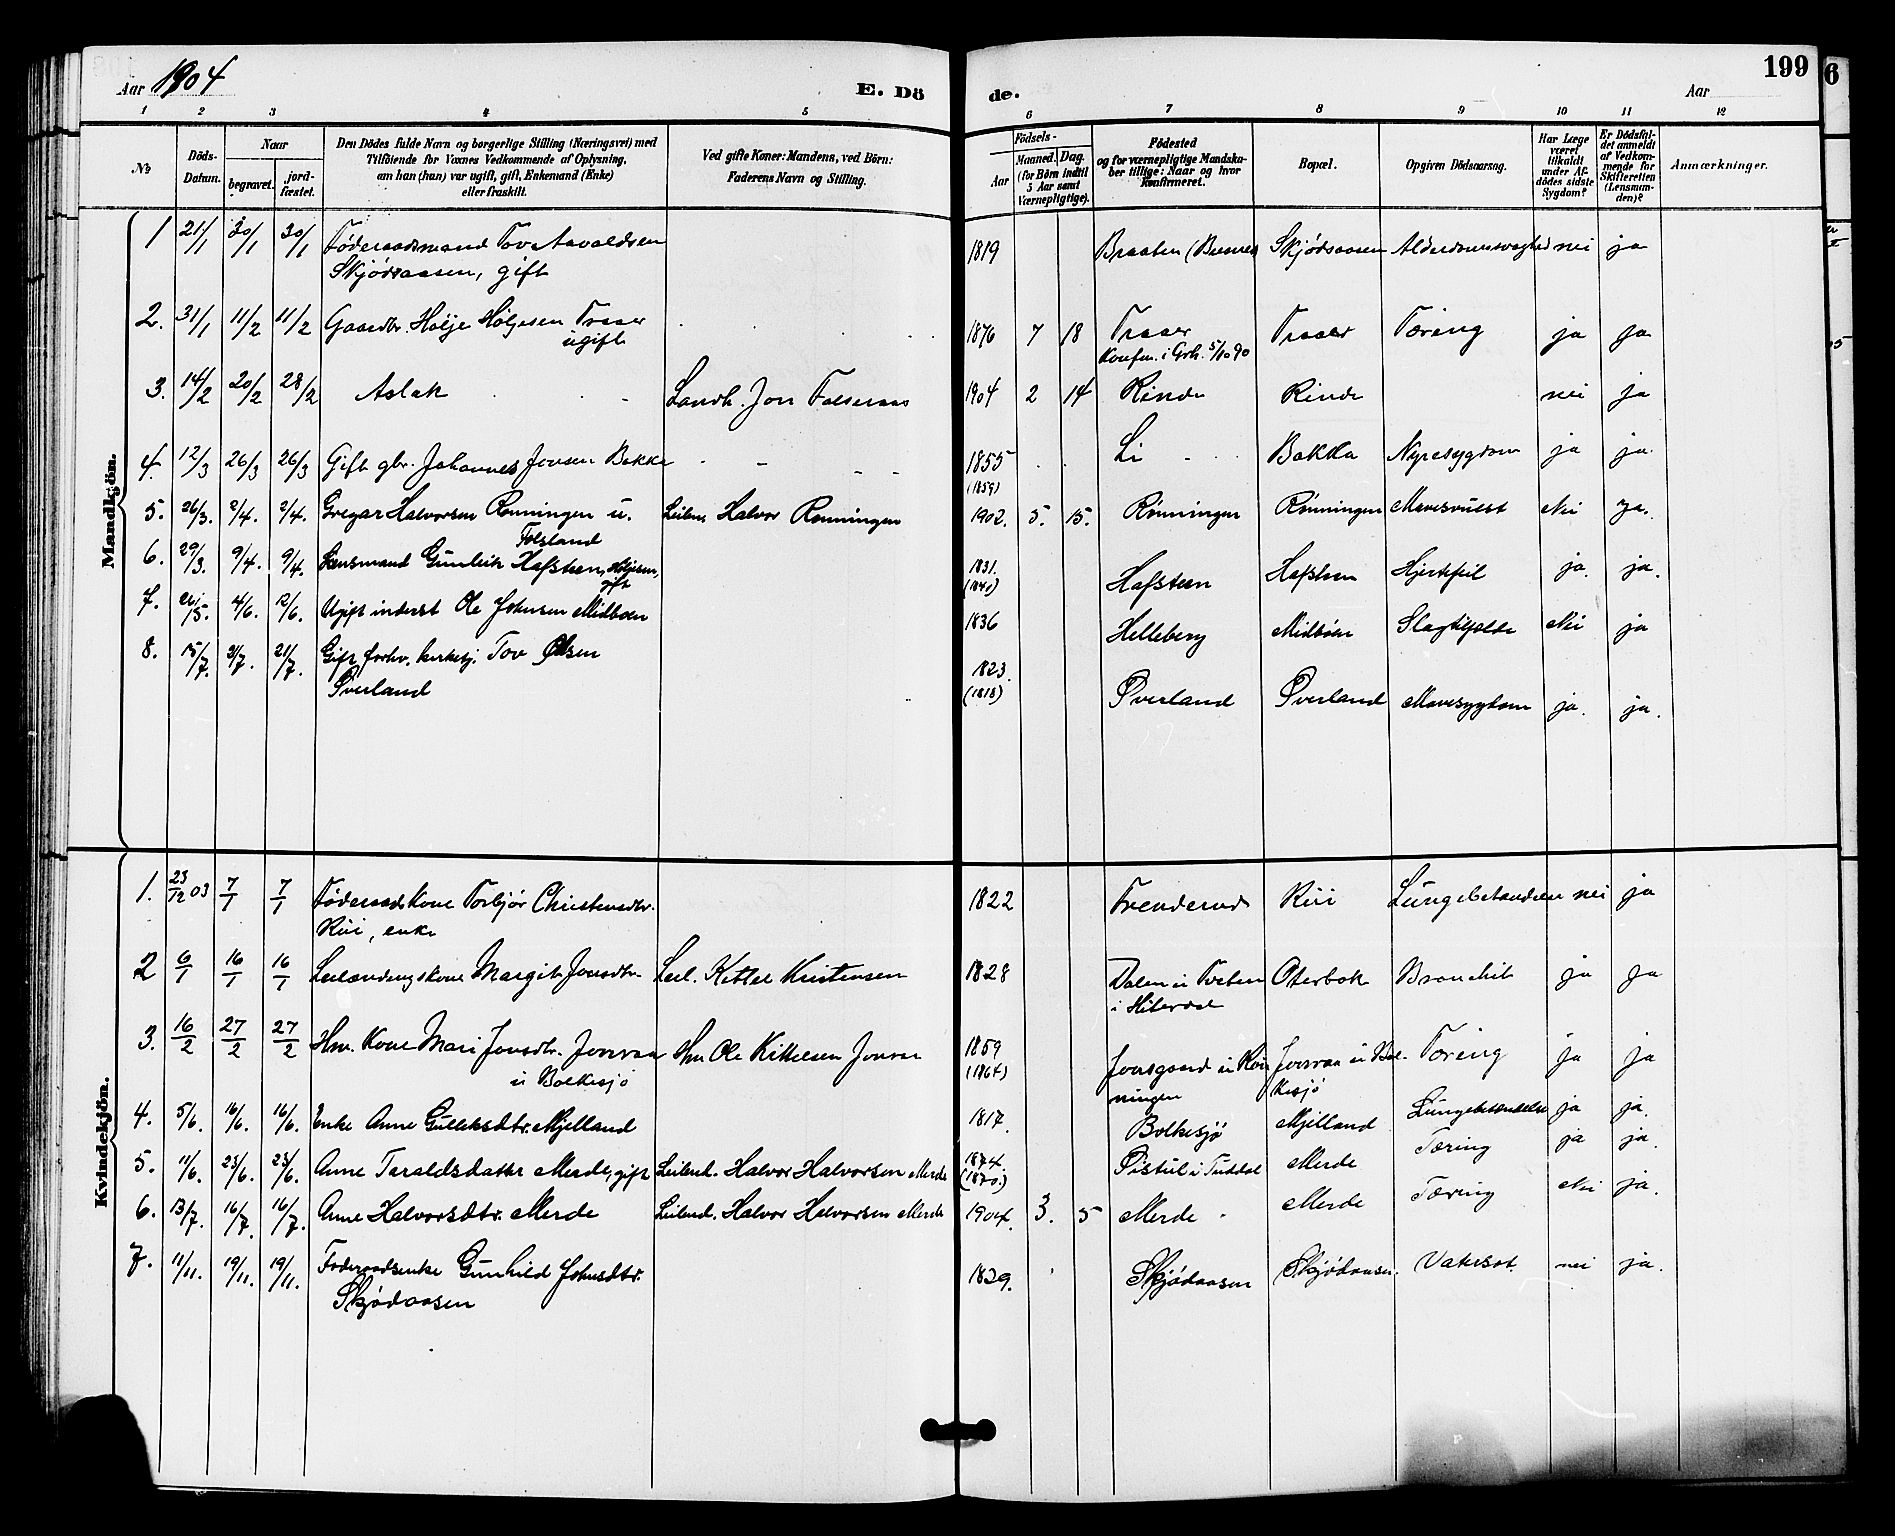 Aar 1904
E. Dö
de.
Aar
199
6
1 2 3 4 5 6 7 8 9 10 11 12
No
Döds-
Datum.
Naar
begravet.
jord-
fæstet.
Den Dödes fulde Navn og borgerlige Stilling (Næringsvei) med
Tilföiende for Voxnes Vedkommende af Oplysning,
om han (hun) var ugift, gift, Enkemand (Enke)
eller fraskilt.
Ved gifte Koner: Mandens, ved Börn:
Faderens Navn og Stilling.
Födsels-
Aar
Maaned. Dag.
(for Börn indtil
5 Aar samt
Værnepligtige).
Födested
og for værnepligtige Mandska-
ber tillige: Naar og hvor
Konfirmeret.
Bopæl.
Opgiven Dödsaarsag.
Har Læge
været
tilkaldt
under Af-
dödes sidste
Sygdom?
Er Dödsfal-
det anmeldt
af Vedkom-
mende for
Skifteretten
(Lensman-
den)?
Anmærkninger.
Mandkjön.
1 21/1 30/1 30/1 Föderaadsmand Tov Aavaldsen 1819 Braaten Skjödsaasen Alderdomssvaghed nei ja
Skjödsaasen, gift
2. 31/1 11/2 11/2 Gaardbr. Hölje Höljesen Traaer 1876 7 18 Traaer Traaer Tæring ja ja
ugift Konfirm. i Grh. 5/10 90
3. 14/2 20/2 28/2 Aslak Landh. Jon 1904 2 14 Rinde Rinde nei ja
4. 12/3 26/3 26/3 Gift gbr. Johannes Jonsen Bakka 1855 Li Bakka Nyresygdom ja ja
(1859)
5. 26/3. 2/4. 2/4. Gregar Halvorsen Rønningen u. Leilend. Halvor Rønningen 1902. 5. 15. Rønningen Rønningen Nei ja.
Folsland
6. 29/3. 9/4. 9/4. Lensmand Gunleik Hafsteen, Höljesen, 1831. Hafsteen Hafsteen Hjertefeil ja. ja.
gift
7. 26/5. 4/6. 12/6. Ugift inderst Ole Johnsen Midbøen 1836 Helleberg Midbøen Slagtilfælde Nei ja
8. 15/7. 21/7. 21/7. Gift, forhv. kirkesj. Tov Olsen 1823.
Øverland (1818) Øverland Øverland Mavesygdom ja. ja.
Kvindekjön.
1. 23/12 03 7/1 7/1 Föderaadskone Torbjör Christensdtr. 1822 Trenderud Rui Lungebetændelse nei ja
Rui, enke
2 6/1 16/1 16/1 Leilændingskone Margit Jonsdtr. Leil. Kittel Kristensen 1828 Dalen u Oterbæk Bronchit ja ja
i Hiterdal
3. 16/2 27/2 27/2 Hm. Kone Mari Jonsdtr. Jonraa Hm Ole Kittelsen Jonraa 1859 Jonsgaard u Røn- Jonraa u Bol- Tæring ja ja
u Bolkesjø (1864) ningen kesjø
4. 5/6. 16/6. 16/6. Enke Anne Gulleksdtr. Mjelland 1817. Bolkesjø Mjelland Lungebetændelse ja ja.
5. 11/6. 23/6. 23/6. Anne Taraldsdatter Merde, gift Leilend. Halvor Halvorsen Merde 1874. Pistul i Tuddal Merde Tæring ja ja.
(1870.)
6. 13/7. 16/7. 16/7. Anne Halvorsdtr. Merde Leilend. Halvor Halvorsen Merde 1904. 3. 5 Merde Merde Tæring Nei ja.
7. 11/11. 19/11. 19/11. Föderaadsenke Gunhild Johnsdtr. 1829. Skjödaasen Skjödaasen. Vatersot. nei ja.
Skjödaasen